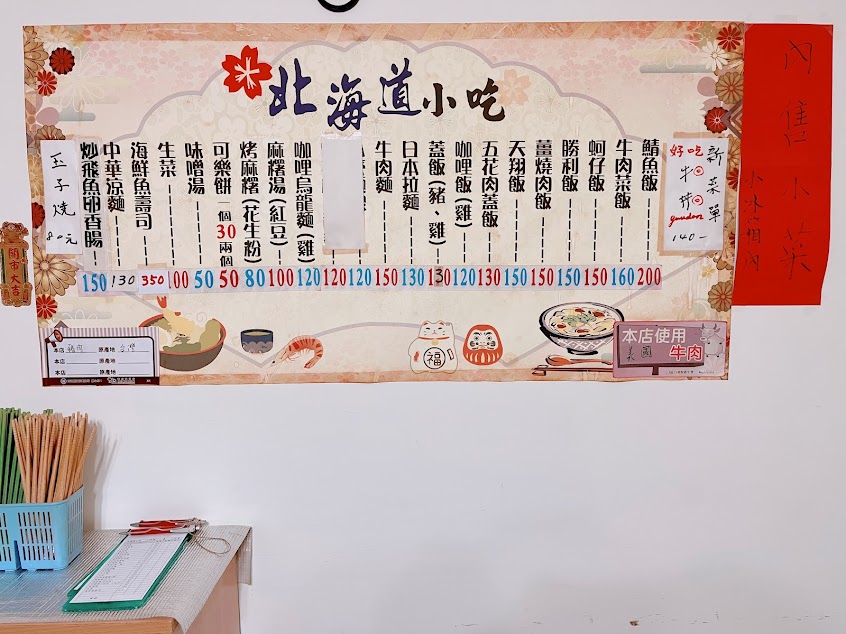 北海道小吃
新菜單
好吃
牛丼
gyudon
140-
鯖魚飯 200
牛肉菜飯 160
蚵仔飯 150
勝利飯 150
薑燒肉飯 150
天翔飯 150
五花肉蓋飯 130
咖哩飯(雞) 120
蓋飯(豬、雞) 130
日本拉麵 130
牛肉麵 150
120
120
咖哩烏龍麵(雞) 120
麻糬湯(紅豆) 100
烤麻糬(花生粉) 80
可樂餅一個30兩個50
味噌湯 50
生菜 100
海鮮魚壽司 350
中華涼麵 130
炒飛魚卵香腸 150
玉子燒
80元
福
本店使用
美國 牛肉
本店 豬肉 原產地 台灣
本店 原產地
本店 原產地
小菜
小冰箱內
開市大吉